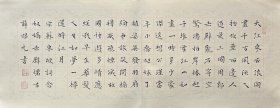 大江東去浪淘
盡千古風流人
物故壘西邊人
道是三國周郎
赤壁亂石穿空
驚濤拍岸捲起
千堆雪江山如
畫一時多少豪
傑遙想公瑾當
年小喬初嫁了
雄姿英發羽扇
綸巾談笑間
灰飛煙滅故
國神遊多情應
笑我早生華髮
人生如夢一樽
還酹江月
蘇東坡詞念
奴嬌赤壁懷古
書